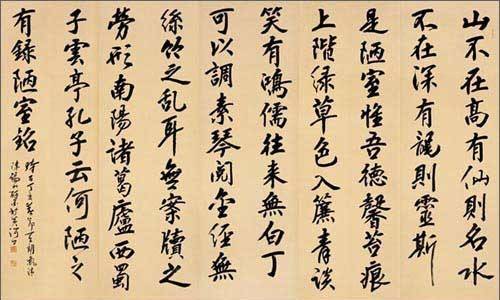 山不在高有仙則名水
不在深有龍則靈斯
是陋室惟吾德馨苔痕
上階緑草色入簾青談
笑有鴻儒往來無白丁
可以調素琴閲金經無
絲竹之乱耳無案牘之
勞形南陽諸葛廬西蜀
子雲亭孔子云何陋之
有録陋室銘